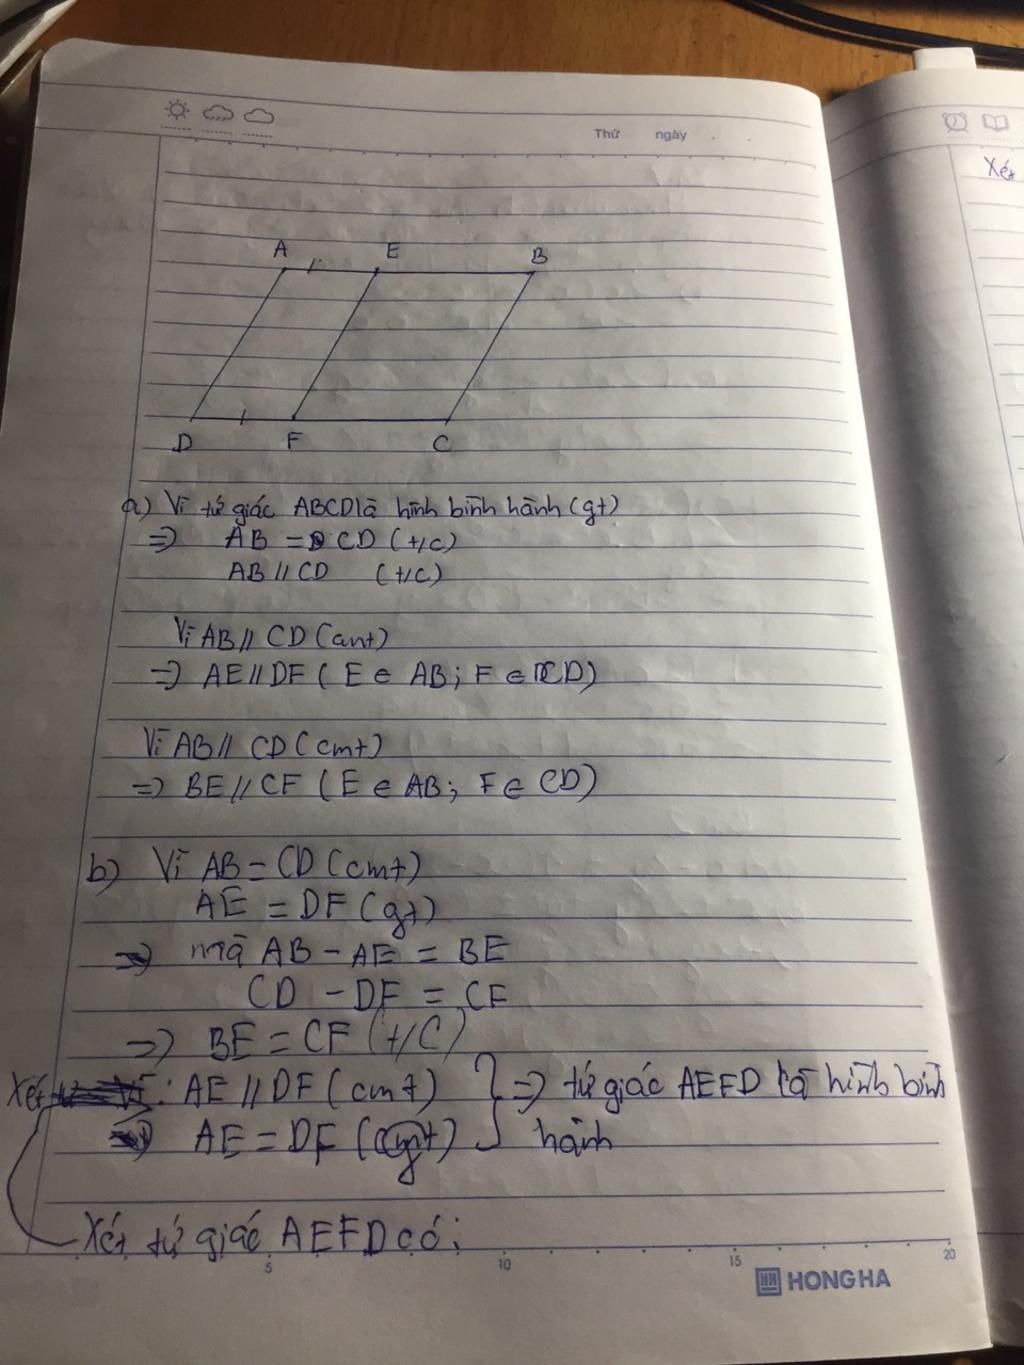 Thứ ngày
Xét
A E B
D F C
a) Vì tứ giác ABCD là hình bình hành (gt)
=> AB = CD (t/c)
AB // CD (t/c)
Vì AB // CD (cmt)
=> AE // DF ( E ∈ AB ; F ∈ CD)
Vì AB // CD (cmt)
=> BE // CF ( E ∈ AB ; F ∈ CD)
b) Vì AB = CD (cmt)
AE = DF (gt)
mà AB - AE = BE
CD - DF = CF
=> BE = CF (t/c)
Xét : AE // DF (cmt) } => tứ giác AEFD là hình bình
AE = DF (gt) hành
Xét tứ giác AEFD có :
5 10 15 20
HONG HA